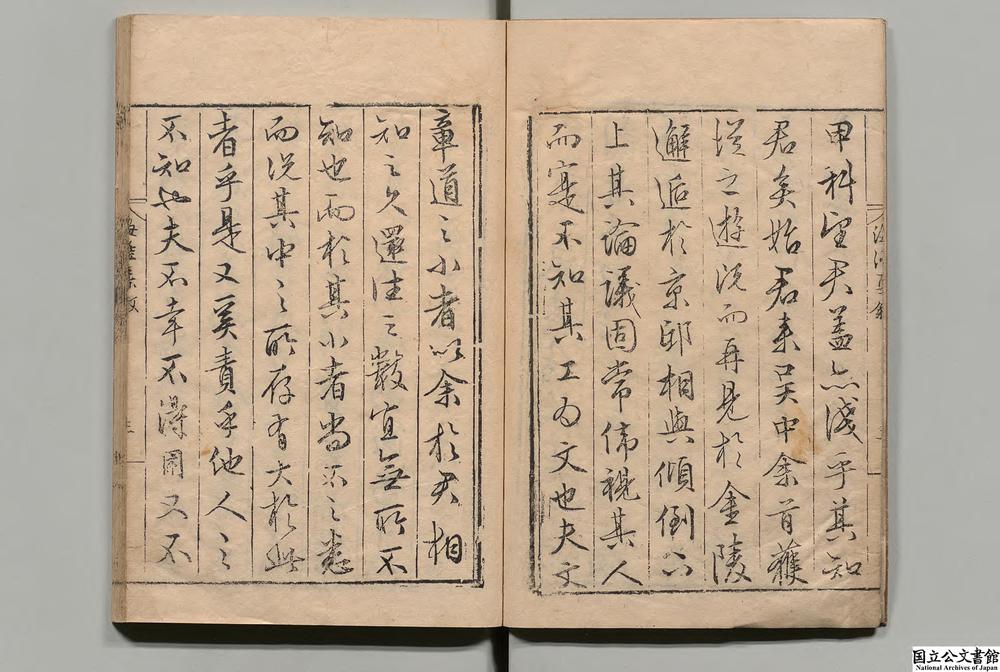 甲科望君蓋亦淺乎其知
君矣始君來吳中余首獲
從之遊既而再見於金陵
邂逅於京邸相與傾倒
上其論議固常偉視其人
而寔不知其工為文也夫文
章道之小者以余於君相
知之久還往之數宜無所不
知也而於其小者尚不之悉
而況其中之所存有大於此
者乎是又奚責乎他人之
不知也夫不幸不得困又不
国立公文書館
National Archives of Japan